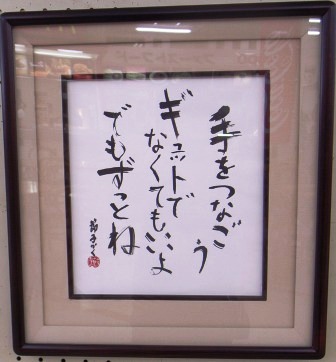 手をつなごう
ギュットで
なくてもいいよ
でもずっとね